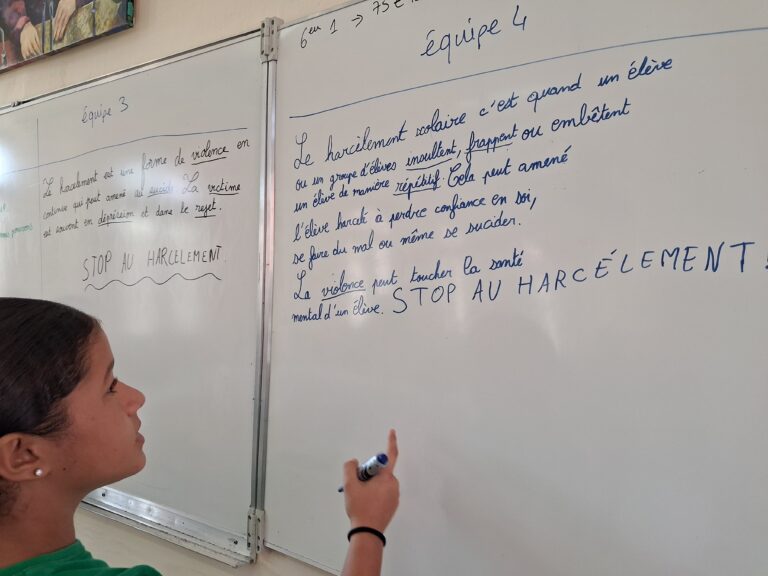 équipe 3
Le harcèlement est une forme de violence en
continue qui peut amené au suicide. La victime
est souvent en dépression et dans le rejet.
STOP AU HARCELEMENT.
6em 1 → 75
équipe 4
Le harcèlement scolaire c'est quand un élève
ou un groupe d'élèves insultent, frappent ou embêtent
un élève de manière répétitif. Cela peut amené
l'élève harcelé à perdre confiance en soi,
se faire du mal ou même se suicider.
La violence peut toucher la santé
mental d'un élève. STOP AU HARCÉLEMENT !